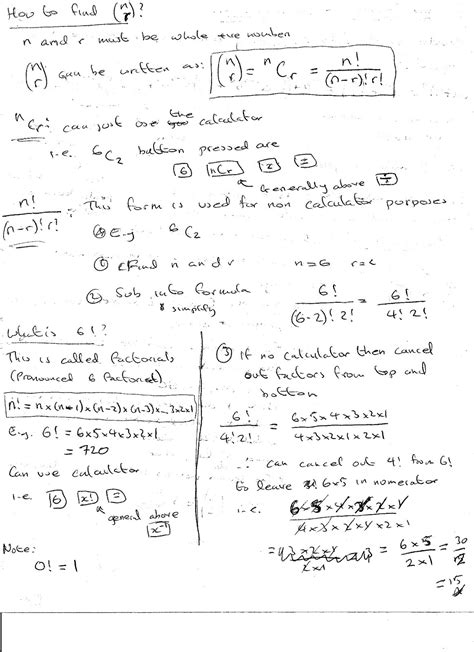 How to find (n r)?
n and r must be whole +ve number
(n r) can be written as: (n r) = nCr = n!/(n-r)!r!
nCr: can just use the calculator
i.e. 6C2 button pressed are
6 nCr 2 =
Generally above ÷
n!/(n-r)!r! : This form is used for non calculator purposes
E.g 6C2
① Find n and r n=6 r=2
② Sub into formula & simplify 6!/(6-2)!2! = 6!/4!2!
What is 6!?
This is called factorials
(Pronounced 6 factorial)
n! = n×(n-1)×(n-2)×(n-3)×...3×2×1
E.g. 6! = 6×5×4×3×2×1
= 720
Can use calculator
i.e. 6 x! =
general above
x⁻¹
Note:
0! = 1
③ If no calculator then cancel
out factors from top and
bottom
6!/4!2! = 6×5×4×3×2×1/4×3×2×1×2×1
∴ can cancel out 4! from 6!
to leave 6×5 in numerator
i.e. 6×5×4×3×2×1/4×3×2×1×2×1
= 6×5/2×1 = 30/2
= 15